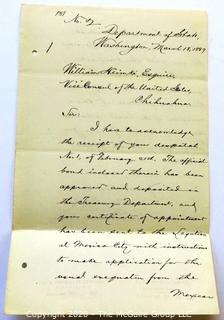 No. 2
Department of State,
Washington March 18, 1889
William Heimke, Esquire,
Vice Consul of the United States,
Chihuahua.
Sir:
I have to acknowledge
the receipt of your despatch
No. 1, of February 23rd. The official
bond inclosed therein has been
approved and deposited in
the Treasury Department, and
your certificate of appointment
has been sent to the Legation
at Mexico City with instructions
to make application for the
usual exequatur from the
Mexican
Copyright 2020 - The McGuire Group LLC